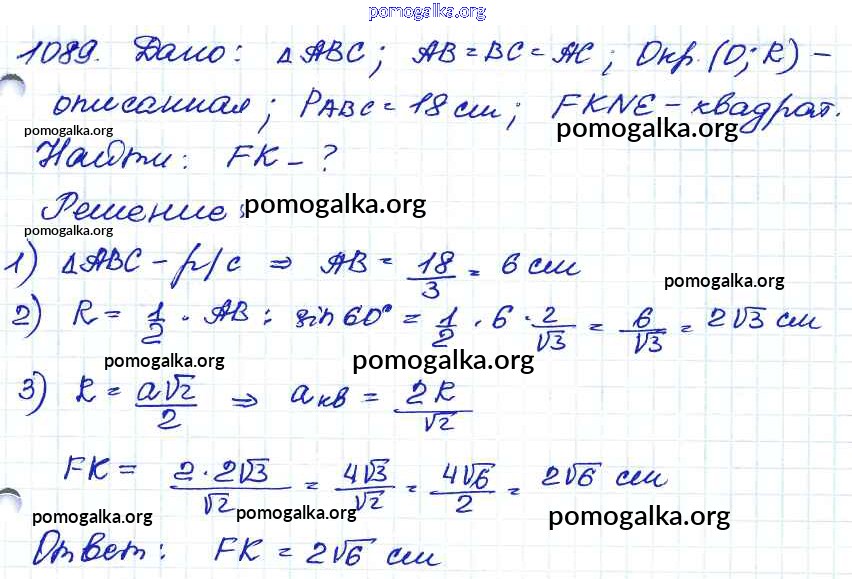 pomogalka.org
1089. Дано: △ABC; AB=BC=AC; Окр.(O;R)–
описанная; P_ABC=18см; FKNE–квадрат.
pomogalka.org pomogalka.org
Найти: FK–?
Решение: pomogalka.org
pomogalka.org
1) △ABC–р/с ⇒ AB = 18/3 = 6 см
pomogalka.org
2) R = 1/2 · AB : sin60° = 1/2 · 6 · 2/√3 = 6/√3 = 2√3 см
pomogalka.org pomogalka.org
3) R = a√2/2 ⇒ a_кв = 2R/√2
FK = 2·2√3/√2 = 4√3/√2 = 4√6/2 = 2√6 см
pomogalka.org pomogalka.org pomogalka.org
Ответ: FK = 2√6 см